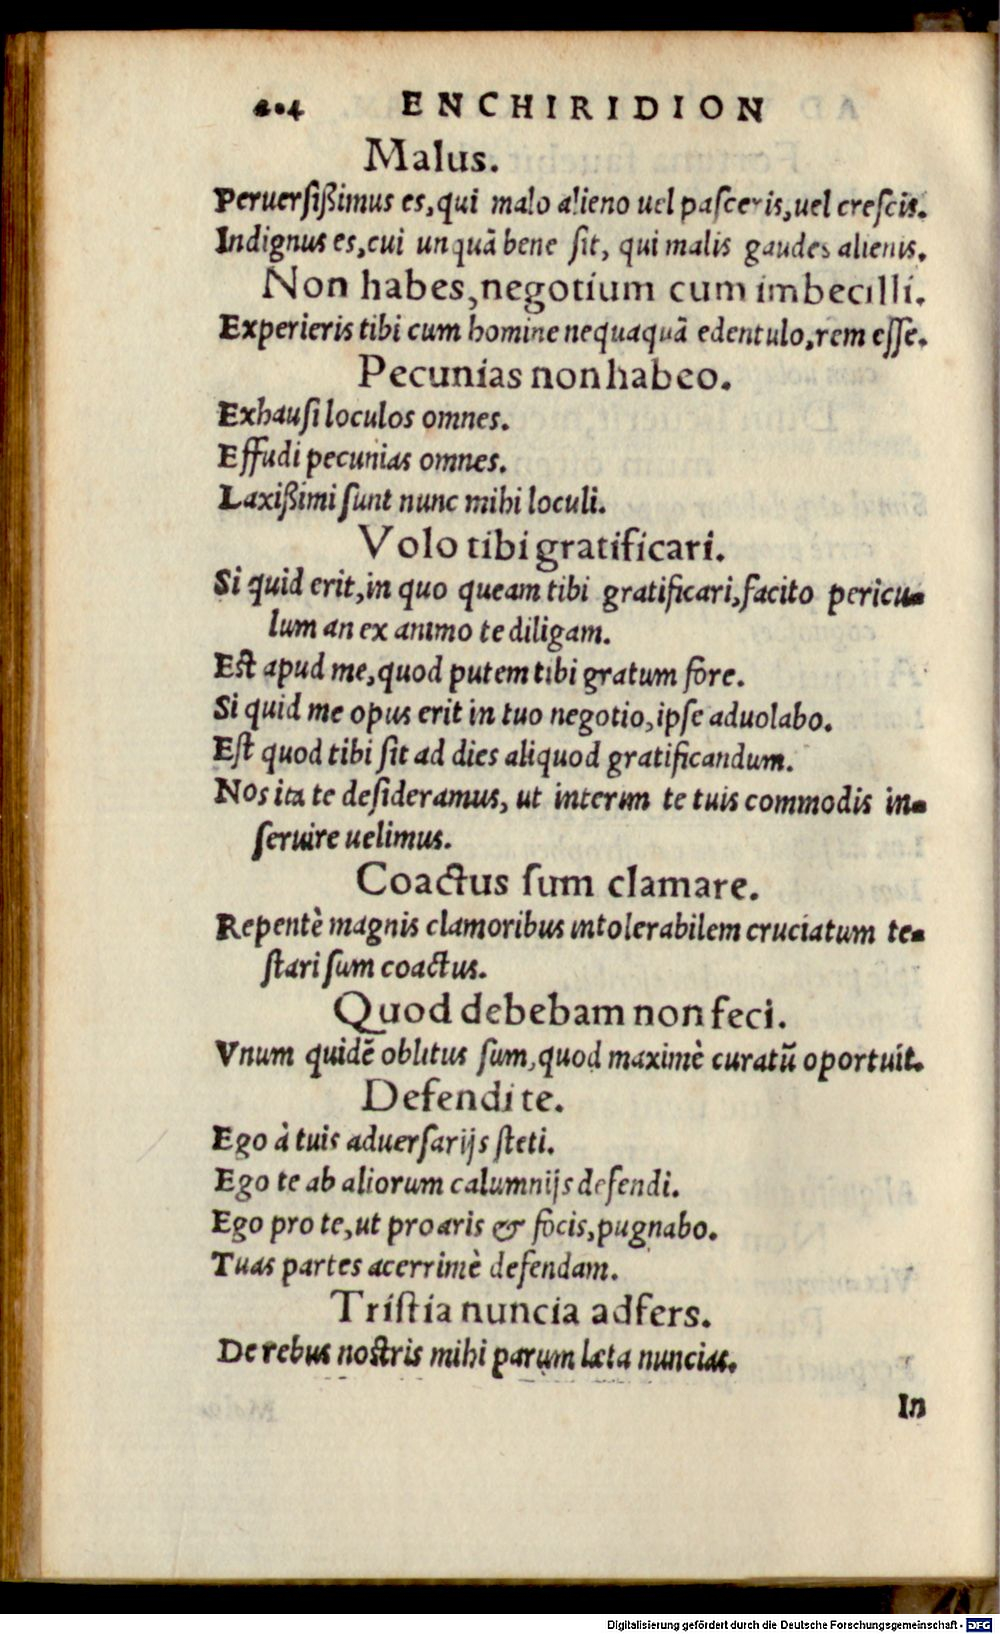 204 ENCHIRIDION
Malus.
Peruersißimus es, qui malo alieno uel pasceris, uel crescis.
Indignus es, cui unquā bene sit, qui malis gaudes alienis.
Non habes, negotium cum imbecilli.
Experieris tibi cum homine nequaquā edentulo, rem esse.
Pecunias non habeo.
Exhausi loculos omnes.
Effudi pecunias omnes.
Laxißimi sunt nunc mihi loculi.
Volo tibi gratificari.
Si quid erit, in quo queam tibi gratificari, facito pericu-
lum an ex animo te diligam.
Est apud me, quod putem tibi gratum fore.
Si quid me opus erit in tuo negotio, ipse aduolabo.
Est quod tibi sit ad dies aliquod gratificandum.
Nos ita te desideramus, ut interim te tuis commodis in-
seruire uelimus.
Coactus sum clamare.
Repentè magnis clamoribus intolerabilem cruciatum te-
stari sum coactus.
Quod debebam non feci.
Vnum quidē oblitus sum, quod maximè curatū oportuit.
Defendi te.
Ego à tuis aduersarijs steti.
Ego te ab aliorum calumnijs defendi.
Ego pro te, ut pro aris & focis, pugnabo.
Tuas partes acerrimè defendam.
Tristia nuncia adfers.
De rebus nostris mihi parum læta nuncias.
In
Digitalisierung gefördert durch die Deutsche Forschungsgemeinschaft - DFG